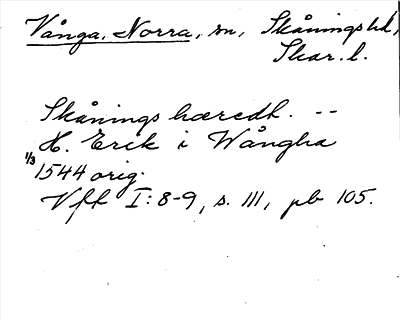 Vånga, Norra, sn, Skånings hd,
Skar. l.
Skånings hæredh. --
H. Erek i Wångha
1/3
1544 orig.
Vfft I: 8-9, s. 111, pb 105.